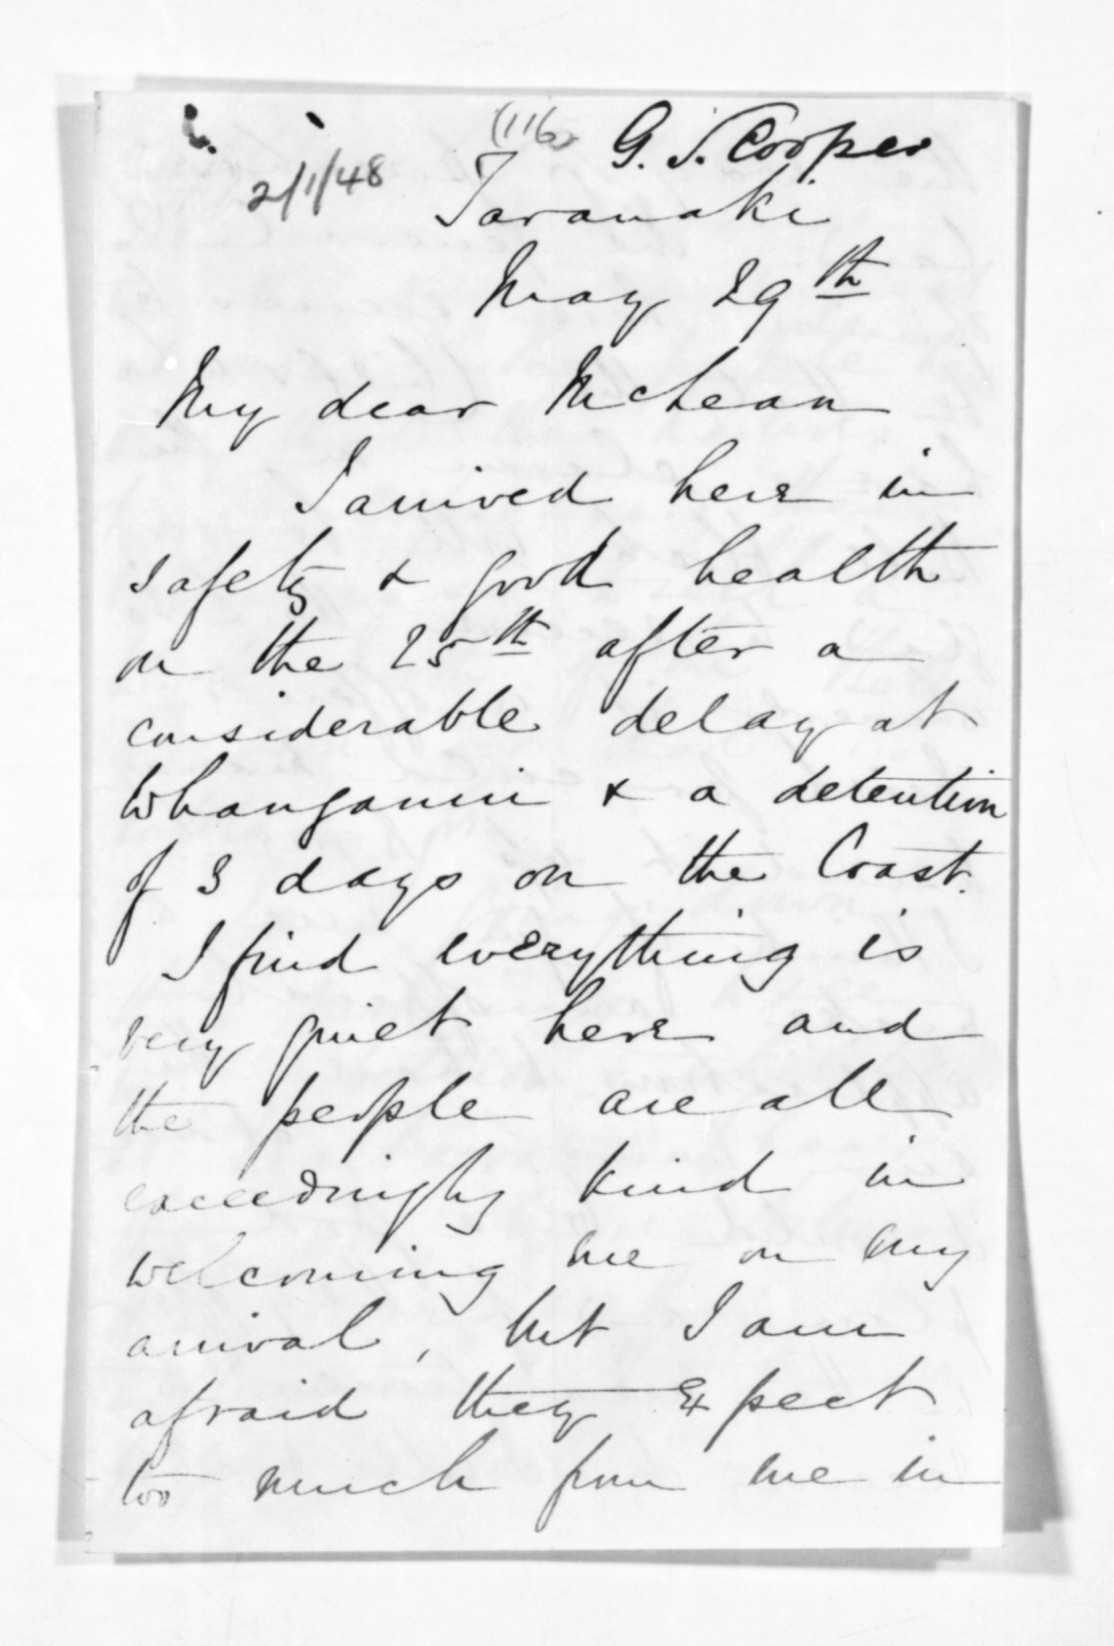 (116)
G. S. Cooper
2/1/48
Taranaki
May 29th
My dear McLean
I arrived here in
safety & good health
on the 25th after a
considerable delay at
Whanganui & a detention
of 3 days on the Coast.
I find everything is
very quiet here and
the people are all
exceedingly kind in
welcoming me on my
arrival, but I am
afraid they expect
too much from me in